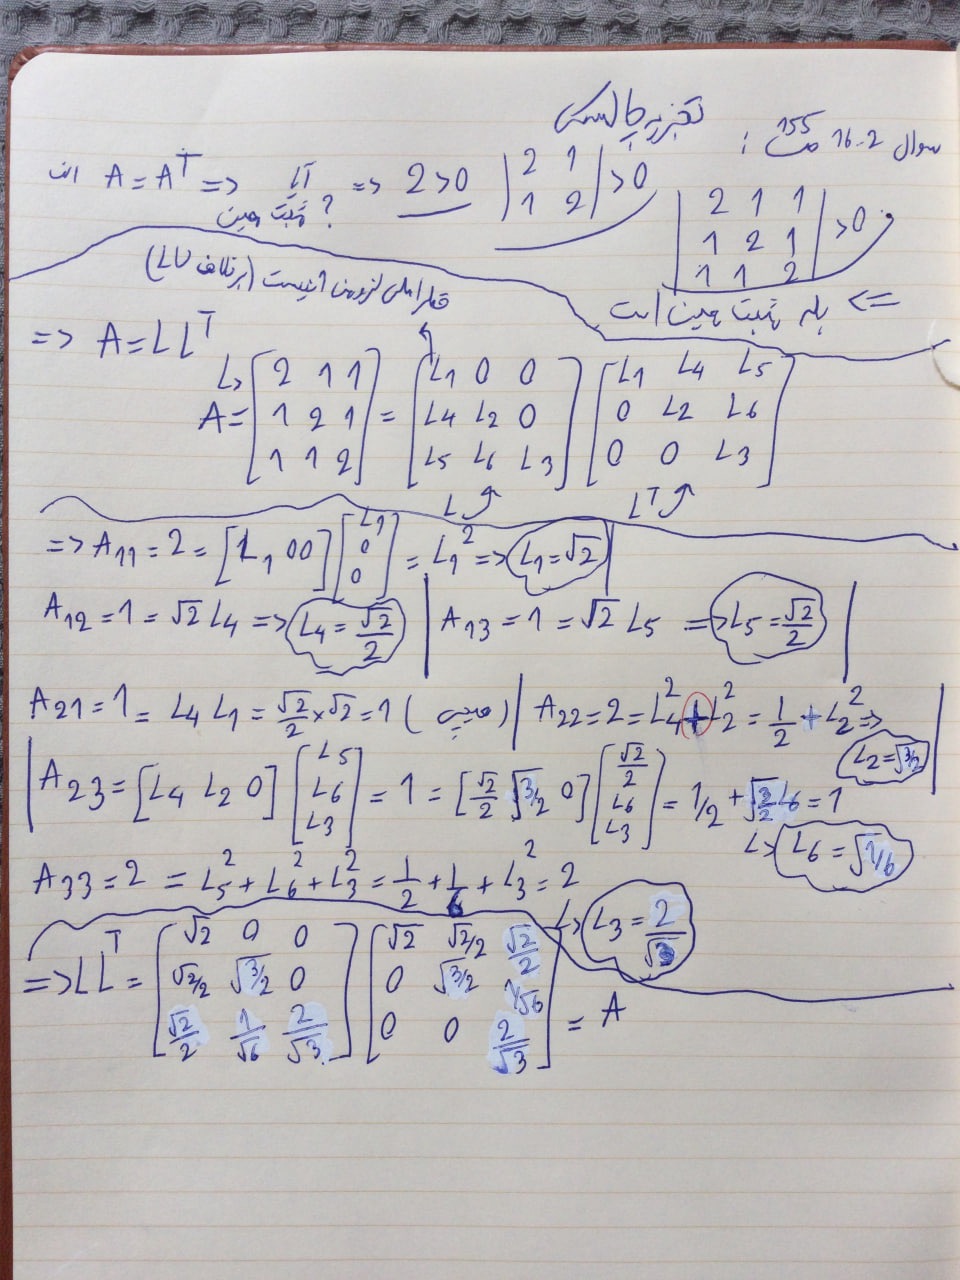 تجزیه چالسکی
سوال 2-16 ص 155 :
الف A = A^T => آیا مثبت معین ؟ => 2>0 |2 1; 1 2| >0 |2 1 1; 1 2 1; 1 1 2| >0
=> بله مثبت معین است
قطر اصلی لزوما 1 نیست (برخلاف LU)
=> A = LL^T
A = [2 1 1; 1 2 1; 1 1 2] = [L1 0 0; L4 L2 0; L5 L6 L3] [L1 L4 L5; 0 L2 L6; 0 0 L3]
L L^T
=> A11 = 2 = [L1 0 0] [L1; 0; 0] = L1^2 => L1 = √2
A12 = 1 = √2 L4 => L4 = √2/2 | A13 = 1 = √2 L5 => L5 = √2/2
A21 = 1 = L4 L1 = √2/2 × √2 = 1 ( ) | A22 = 2 = L4^2 + L2^2 = 1/2 + L2^2 => L2 = √3/2
A23 = [L4 L2 0] [L5; L6; L3] = 1 = [√2/2 √3/2 0] [√2/2; L6; L3] = 1/2 + √3/2 L6 = 1
L6 = √1/6
A33 = 2 = L5^2 + L6^2 + L3^2 = 1/2 + 1/6 + L3^2 = 2
L3 = 2/√3
=> LL^T = [√2 0 0; √2/2 √3/2 0; √2/2 1/√6 2/√3] [√2 √2/2 √2/2; 0 √3/2 1/√6; 0 0 2/√3] = A